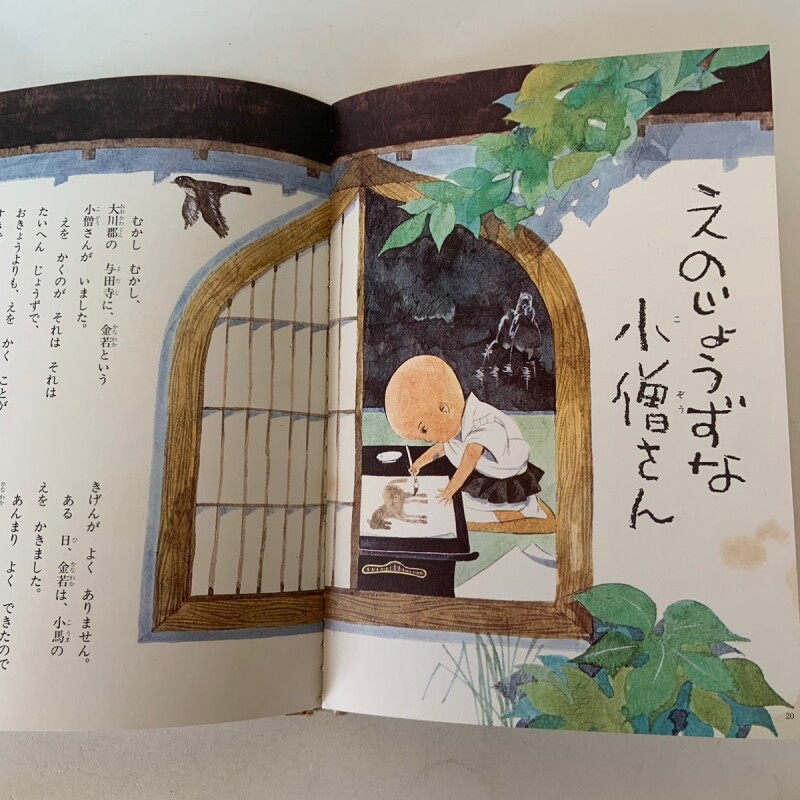 えのじょうずな
小僧さん
むかし むかし、
大川郡の 与田寺に、金若という
小僧さんが いました。
えを かくのが それは それは
たいへん じょうずで、
おきょうよりも、えを かく ことが
きげんが よく ありません。
ある 日、金若は、小馬の
えを かきました。
あんまり よく できたので
20